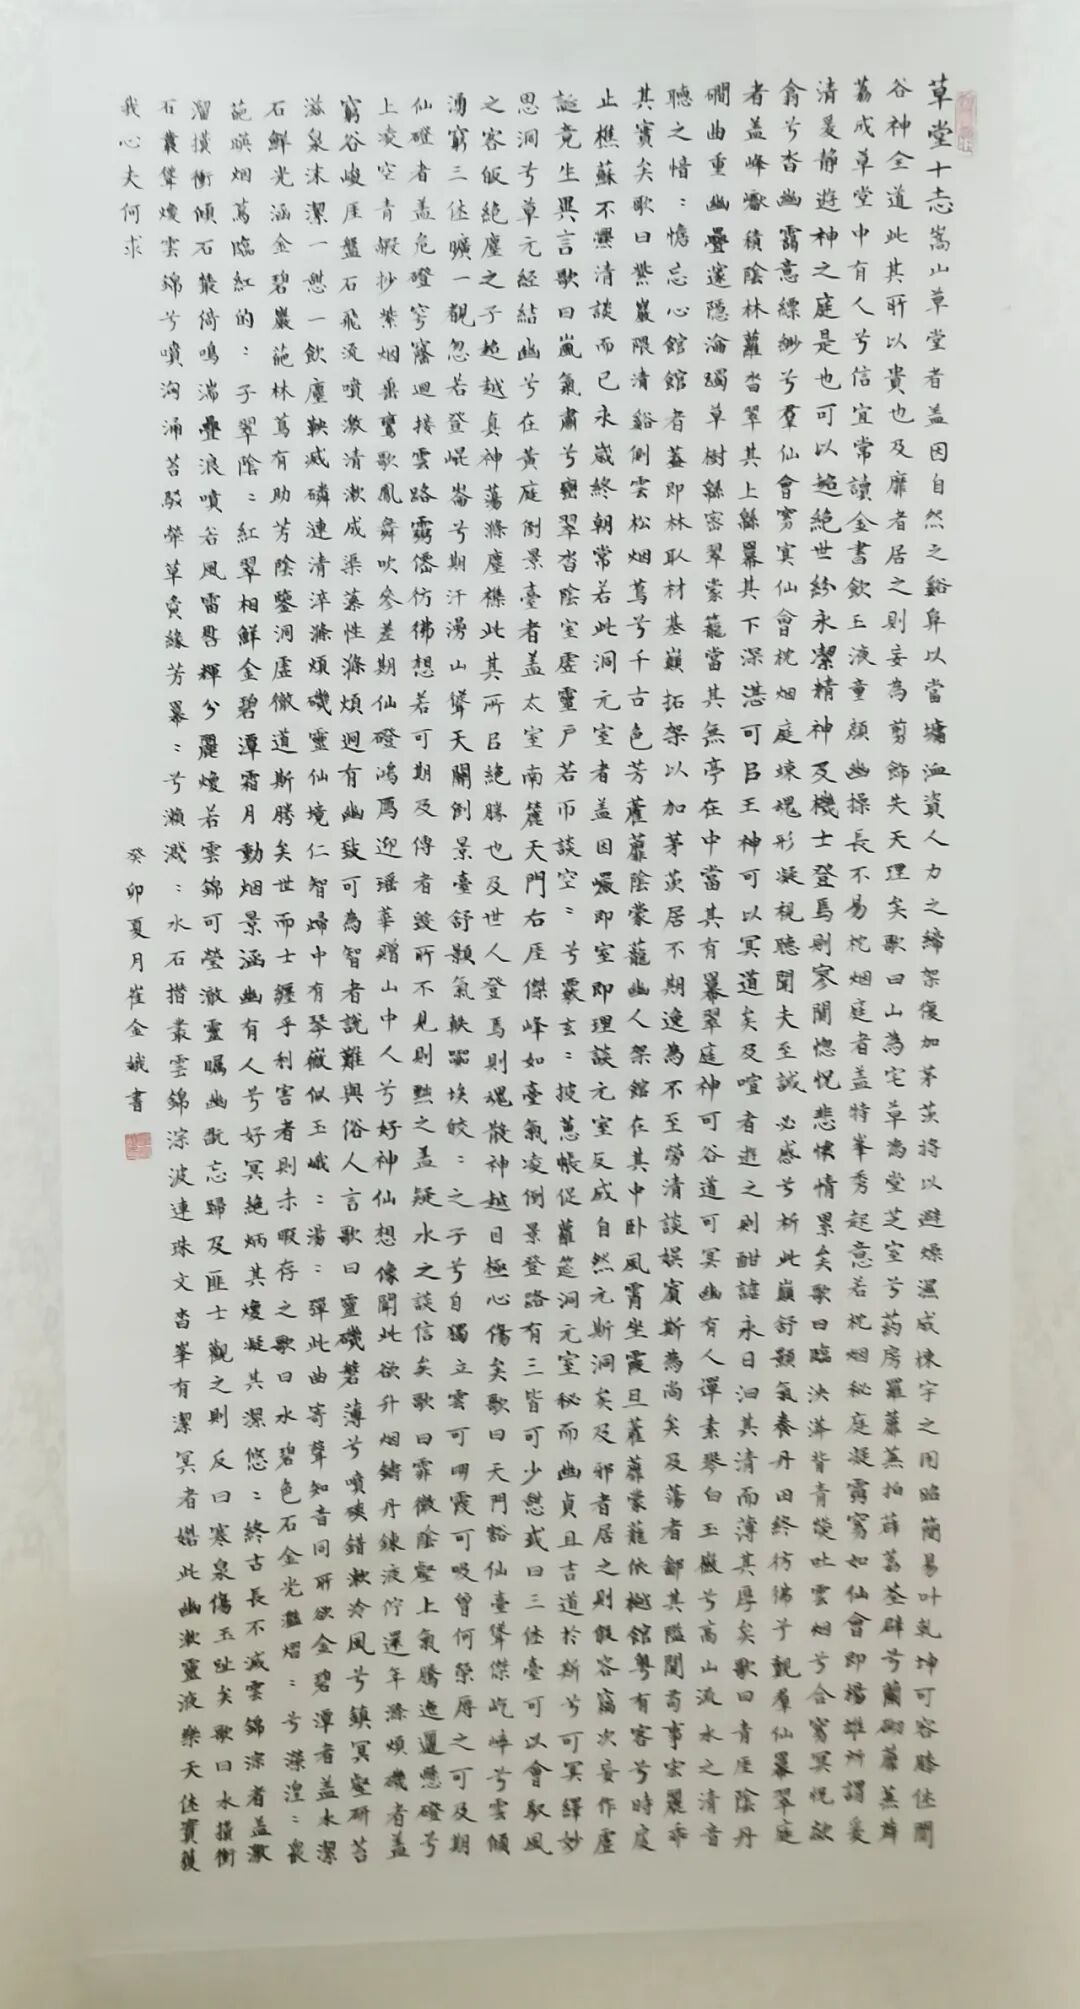 草堂十志嵩山草堂者盖因自然之谿阜以當墉洫資人力之締架復加茅茨將以避燥濕成棟宇之用昭簡易叶乾坤可容膝休閒
谷神全道此其所以貴也及靡者居之則妄為剪飾失天理矣歌曰山為宅草為堂芝室兮药房羅蘼蕪拍薜荔荃辟兮蘭砌蘼蕪薜
荔成草堂中有人兮信宜常讀金書飲玉液童顏幽操長不易枕烟庭者盖特峯秀起意若枕烟秘庭凝窅窅如仙會即揚雄所謂爰
清爰静遊神之庭是也可以超絶世紛永潔精神及機士登焉則寥闃惚怳悲懷情累矣歌曰臨泱漭背青熒吐雲烟兮合窅冥怳欻
翕兮沓幽靄意縹緲兮羣仙會窅冥仙會枕烟庭竦魂形凝視聽聞夫至誠必感兮祈此巔舒顥氣養丹田終彷彿兮覯羣仙羃翠庭
者盖峰巘積陰林蘿沓翠其上緜羃其下深湛可㠯王神可以冥道矣及喧者遊之則酣謔永日汩其清而薄其厚矣歌曰青崖陰丹
磵曲重幽疊邃隱淪躅草樹緜密翠蒙籠當其無亭在中當其有羃翠庭神可谷道可冥幽有人彈素琴白玉徽兮高山流水之清音
聴之愔：憺忘心館館者蓋即林取材基巔拓架以加茅茨居不期逸為不至勞清談娱賓斯為尚矣及蕩者鄙其隘闃苟事宏麗乖
其賓矣歌曰紫巖隈清谿側雲松烟蔦兮千古色芳藿蘼陰蒙蘢幽人架館在其中卧風霄坐霞旦藿蘼蒙蘢依樾館粤有客兮時戾
止樵蘇不爨清談而已永歲終朝常若此洞元室者盖因巖即室即理談元室反成自然元斯洞矣及邪者居之則假容竊次妄作虛
誕竞生異言歌曰嵐氣肅兮巒翠沓陰室虛靈戶若帀談空：兮覈玄：披蕙帳促蘿筵洞元室秘而幽貞且吉道於斯兮可冥繹妙
思洞兮草元經結幽兮在黃庭倒景臺者盖太室南麓天門右厓傑峰如臺氣凌倒景登路有三皆可少憩或曰三休臺可以會馭風
之客皈絶塵之子超越真神蕩滌塵襟此其所㠯絶勝也及世人登焉則魂散神越目極心傷矣歌曰天門豁仙臺聳傑屹崪兮雲傾
湧窮三休曠一觀忽若登崐崙兮期汗湧山聳天關倒景臺舒顥氣軼嚣埃皎：之子兮自獨立雲可朋霞可吸曾何榮辱之可及期
仙磴者盖危磴穹窿迴接雲路靄僊彷彿想若可期及傳者毁所不見則黙之盖疑水之談信矣歌曰霏微陰壑上氣騰迤邐懸磴兮
上凌空青緞抄紫烟垂鸞歌鳳舞吹參差期仙磴鴻雁迎瑶華贈山中人兮好神仙想像聞此欲升烟鑄丹錬液佇還年滌煩磯者盖
窮谷峻厓盤石飛流噴激清漱成渠藻性滌煩迥有幽致可為智者説難與俗人言歌曰靈磯磐薄兮噴磢錯漱泠風兮鎮冥壑研苔
滋泉沫潔一憩一飲塵鞅滅磷連清淬滌煩磯靈仙境仁智歸中有琴徽似玉峨：湯：彈此曲寄聲知音同所欲金碧潭者盖水潔
石鮮光涵金碧巖葩林蔦有助芳陰鑒洞虛徹道斯勝矣世而士纒乎利害者則未暇存之歌曰水碧色石金光灩熠：兮瀅湟：泉
葩暎烟蔦臨紅的：子翠陰：紅翠相鮮金碧潭霜月動烟景涵幽有人兮好冥絶炳其煥凝其潔悠：終古長不減雲錦淙者盖激
溜攢衝傾石叢倚鳴湍疊浪噴若風雷咠輝分麗煥若雲錦可瑩澈靈矚幽翫忘歸及匪士觀之則反曰寒泉傷玉趾矣歌曰水攢衝
石叢聳煥雲錦兮噴洶涌苔駮犖草夤緣芳羃：兮瀨濺：水石攢叢雲錦淙波連珠文沓峯有潔冥者媘此幽漱靈液樂天休寶頀
我心夫何求
癸卯夏月崔金娥書